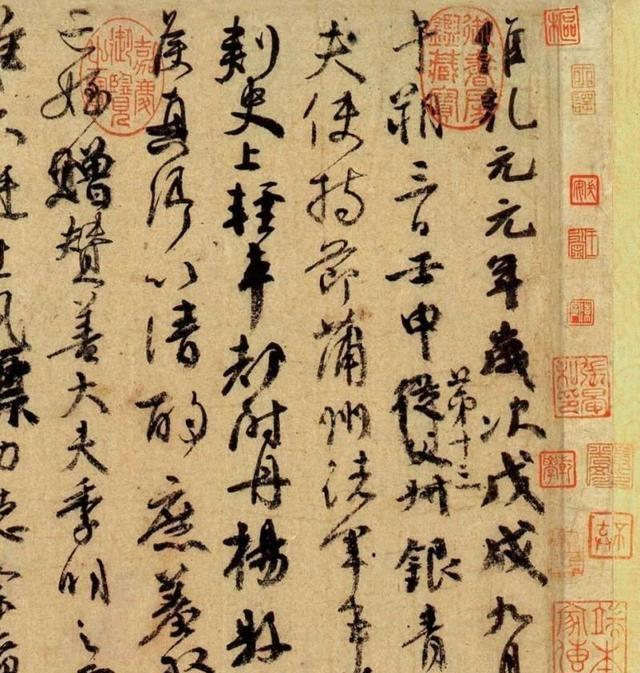 維乾元元年歲次戊戌九月
午朔三日壬申第十三從父銀青
夫使持節蒲州諸軍事
刺史上輕車都尉丹楊縣
侯真卿以清酌庶羞祭
亡姪贈贊善大夫季明之
挺生夙標幼德宗
御書房鑑藏寶
嘉慶御覽之寶